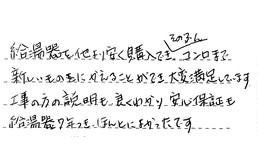 そのぶん
給湯器を他より安く購入でき、コンロまで
新しいものにかえることができ大変満足しています
工事の方の説明も良くわかり、安心保証も
給湯器7年つき ほんとによかったです